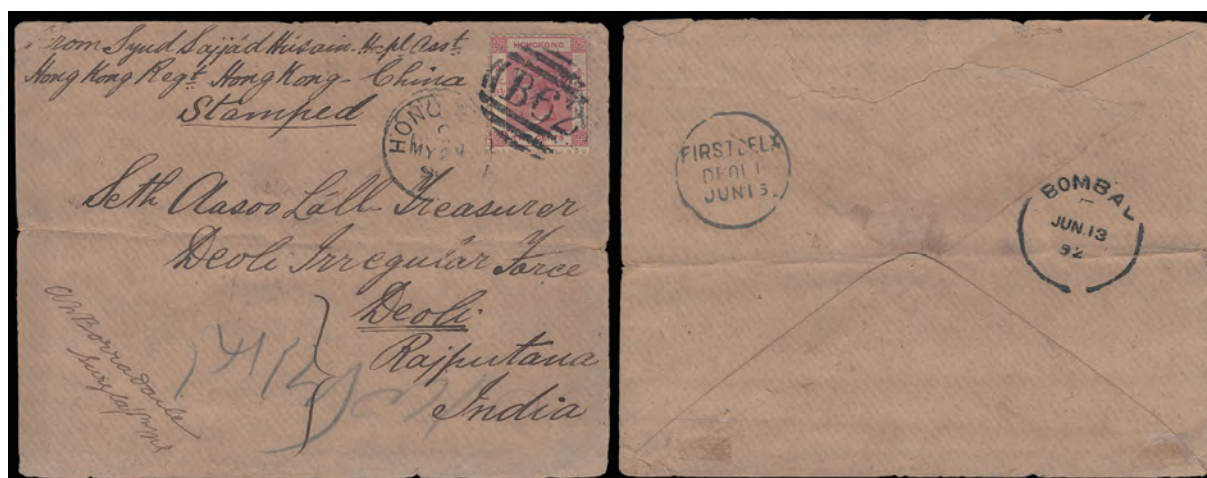 From Syud Sajjád Húsain. Hpl Asst
Hong Kong Regt Hong Kong - China
Stamped
HONGKONG
B62
HONG
C
MY 24
9
Seth Aasoo Lall Treasurer
Deoli Irregular Force
Deoli
Rajputana
India
Borradaile
FIRST DELY
DEOLI
JUN 15.
BOMBAY
JUN. 13
92